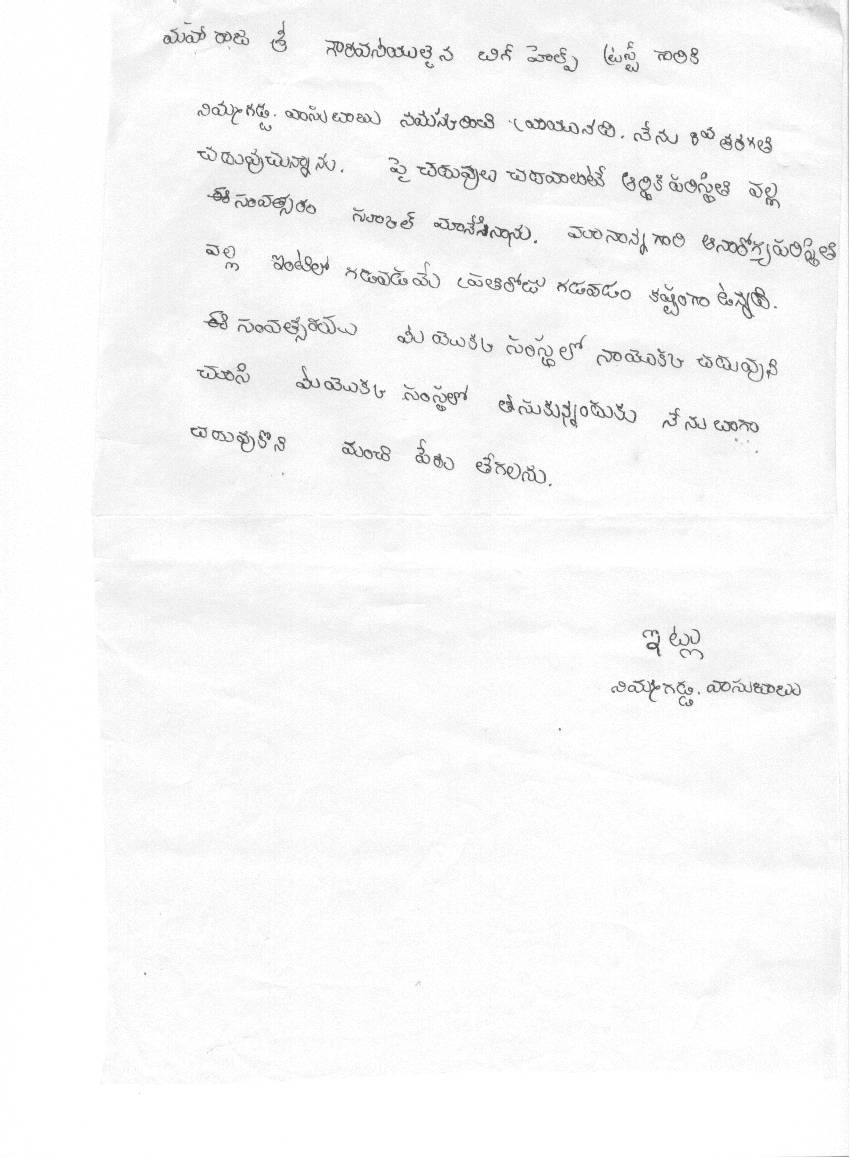 మహా రాజ శ్రీ గౌరవనీయులైన బిగ్ హెల్ప్ ట్రస్ట్ గారికి
నిమ్మగడ్డ. వాసుబాబు నమస్కరించి వ్రాయునది. నేను 8వ తరగతి
చదువుచున్నాను. పై చదువులు చదవాలంటే ఆర్థిక పరిస్థితి వల్ల
ఈ సంవత్సరం స్కూల్ మానేసినాను. మా నాన్న గారి అనారోగ్య పరిస్థితి
వల్ల ఇంటిలో గడవడమే ప్రతిరోజు గడవడం కష్టంగా ఉన్నది.
ఈ సంవత్సరియు మీ యొక్క సంస్థలో నాయొక్క చదువుని
చూసి మీయొక్క సంస్థలో తీసుకున్నందుకు నేను బాగా
చదువుకొని మంచి పేరు తేగలను.
ఇట్లు
నిమ్మగడ్డ. వాసుబాబు